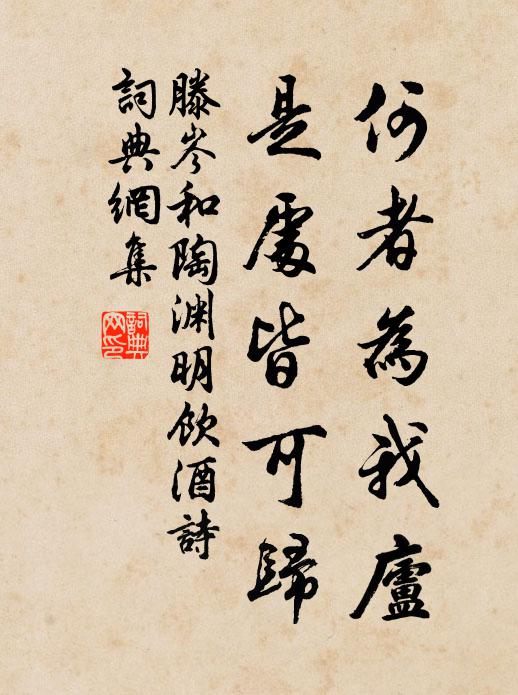 何者為我廬
是處皆可歸
滕岑和陶淵明飲酒詩
詞典網集
詞典網印